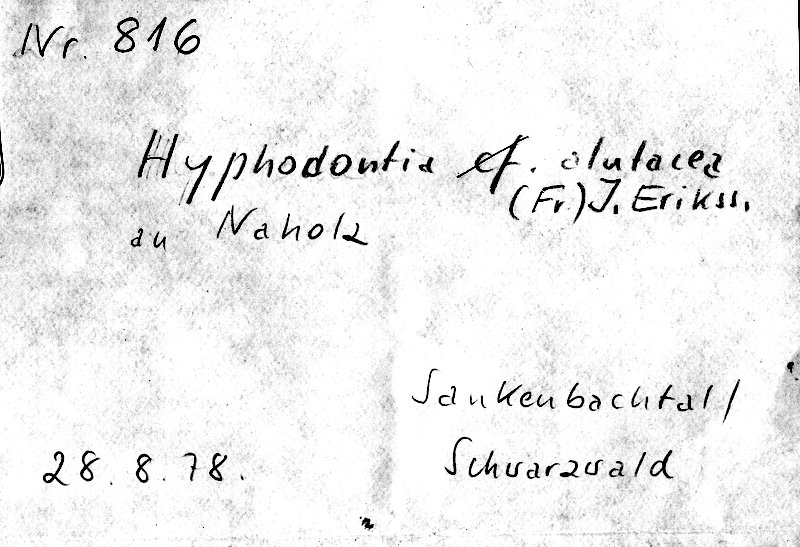 Nr. 816
Hyphodontia cf. alutacea
(Fr.) J. Erikss.
an Naholz
Sankenbachtal/
28. 8. 78.
Schwarzwald